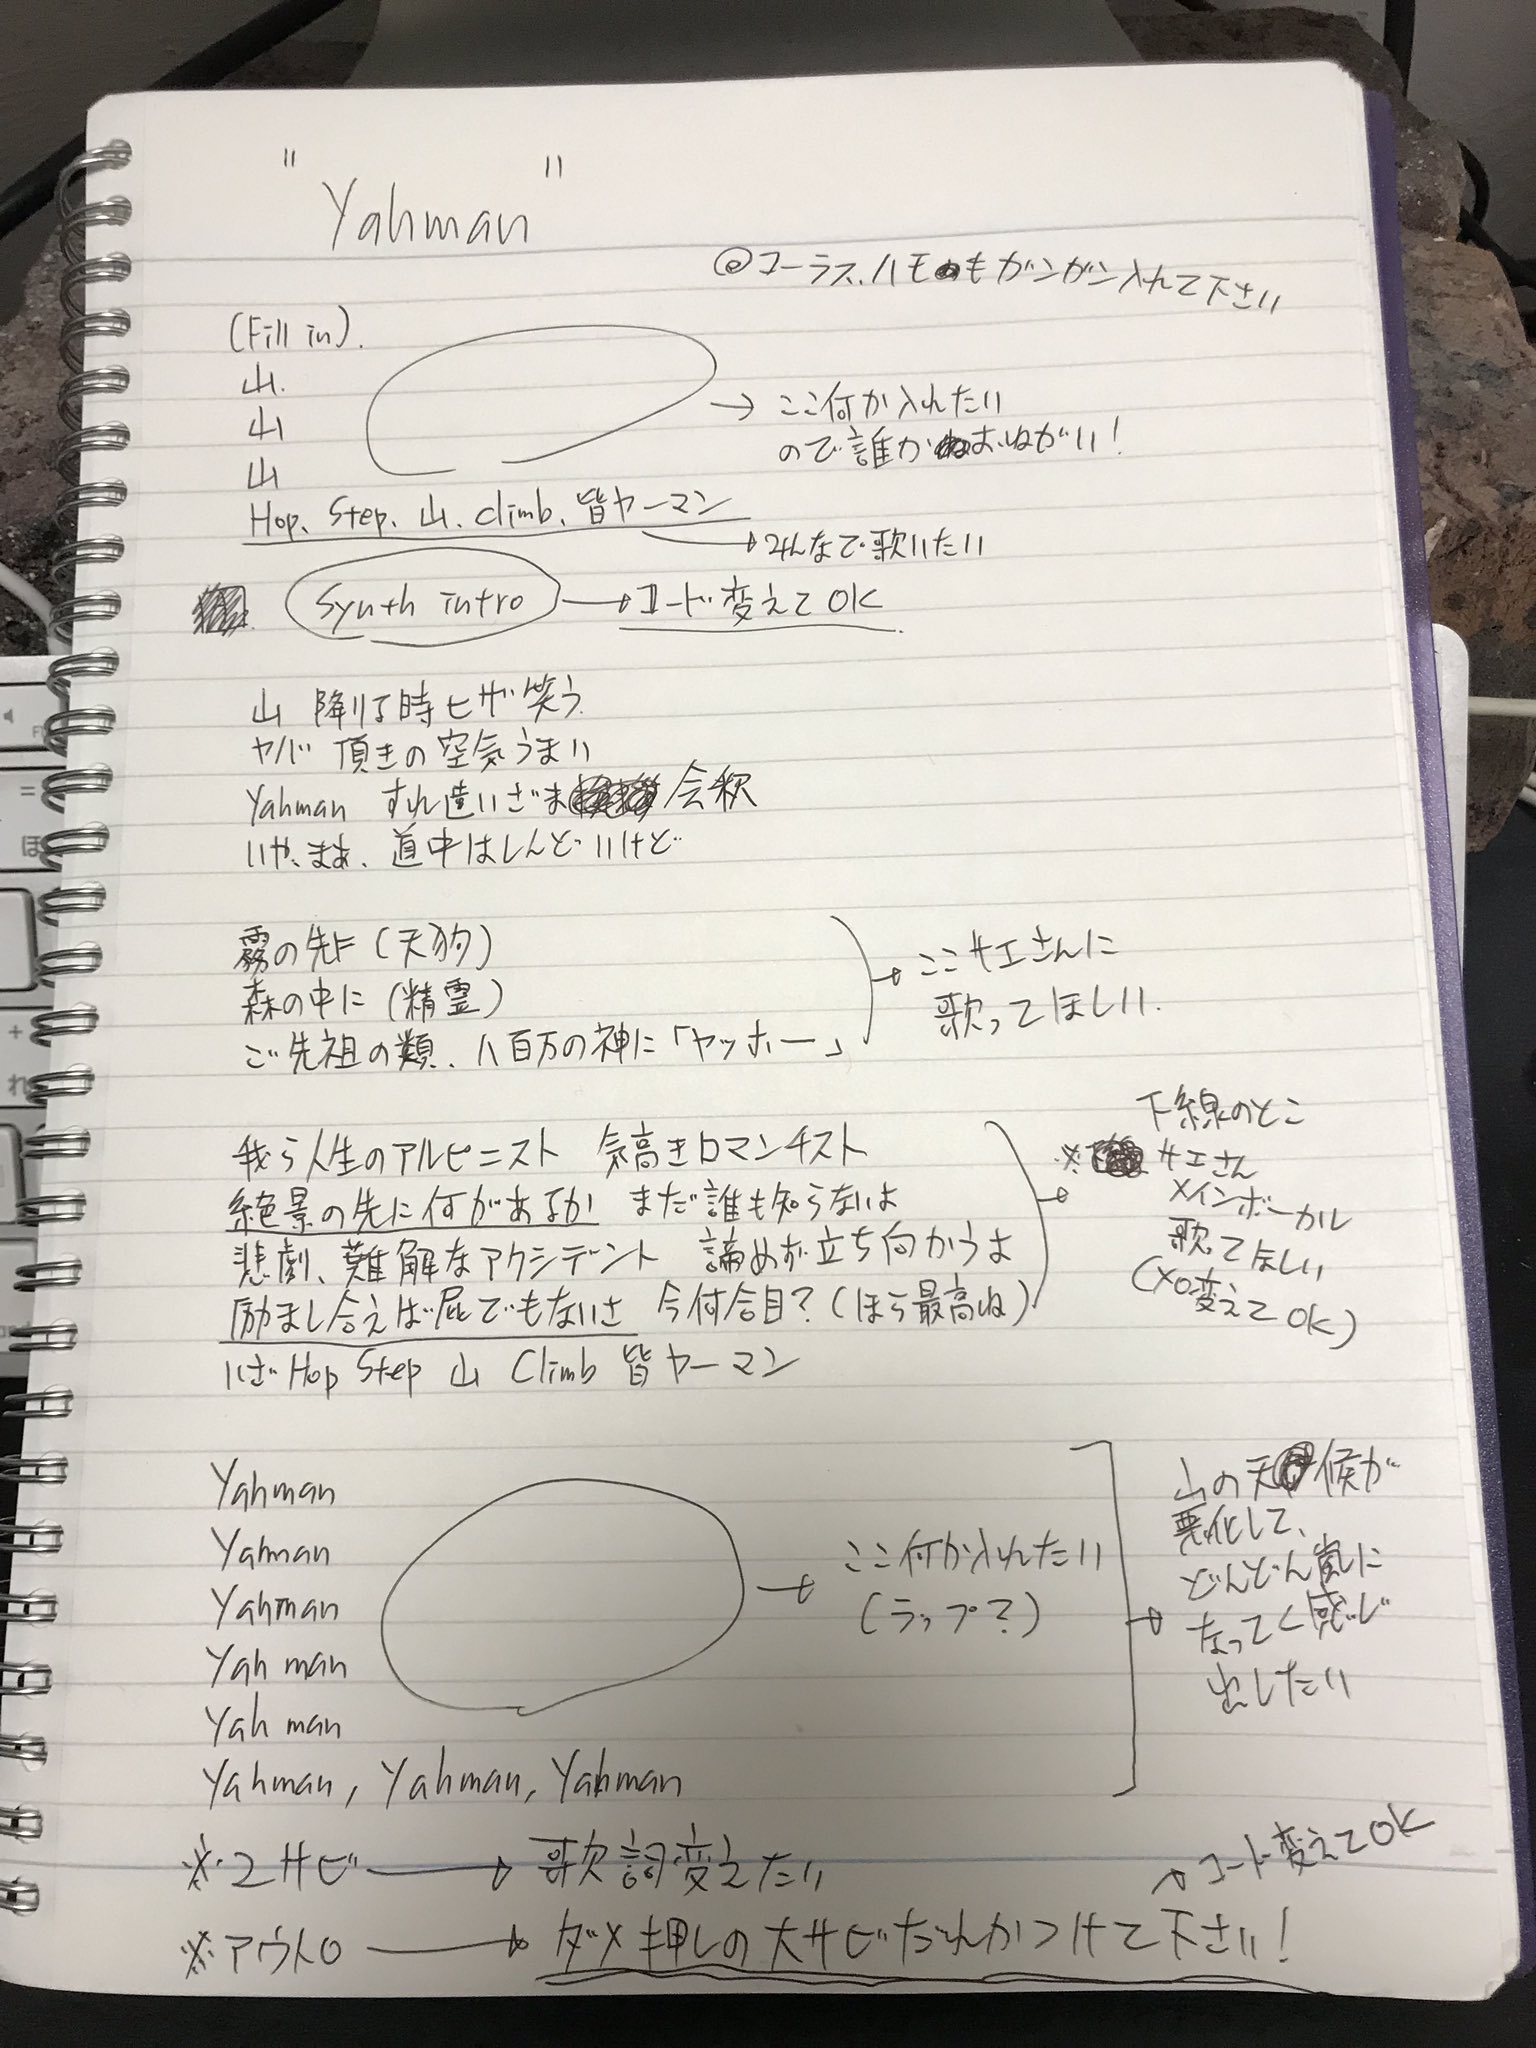 "Yahman"
@コーラス、ハモもガンガン入れて下さい
(Fill in).
山.
山
山
→ ここ何か入れたい
ので誰かおねがい!
Hop、Step、山、climb、皆ヤーマン
→みんなで歌いたい
Synth intro → コード変えてOK
山 降りる時ヒザ笑う
ヤバ 頂きの空気うまい
Yahman すれ違いざま 会釈
いや、まぁ、道中はしんどいけど
霧の先に(天狗)
森の中に(精霊)
ご先祖の類、八百万の神に「ヤッホー」
→ ここサエさんに
歌ってほしい.
我ら人生のアルピニスト 気高きロマンチスト
絶景の先に何があるか まだ誰も知らないよ
悲劇、難解なアクシデント 諦めず立ち向かうよ
励まし合えば屁でもないさ 今何合目?(ほら最高ね)
いざ Hop Step 山 Climb 皆ヤーマン
下線のとこ
※ サエさん
メインボーカル
歌ってほしい
(メロ変えてOK)
Yahman
Yahman
Yahman
Yah man
Yah man
Yahman, Yahman, Yahman
→ ここ何か入れたい
(ラップ?)
山の天候が
悪化して、
どんどん嵐に
なってく感じ
出したい
※2サビ → 歌詞変えたい
※アウトロ → ダメ押しの大サビだれかつけて下さい!
→ コード変えてOK